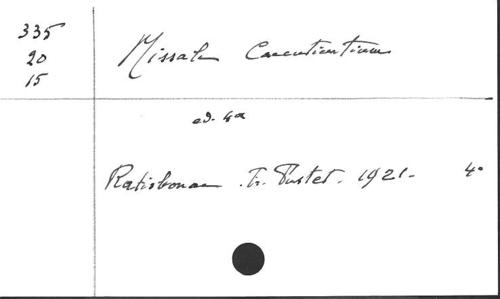 335
20
15
Missale Caecutientium
ed. 4a
Ratisbonae. Fr. Pustet. 1921.
4°